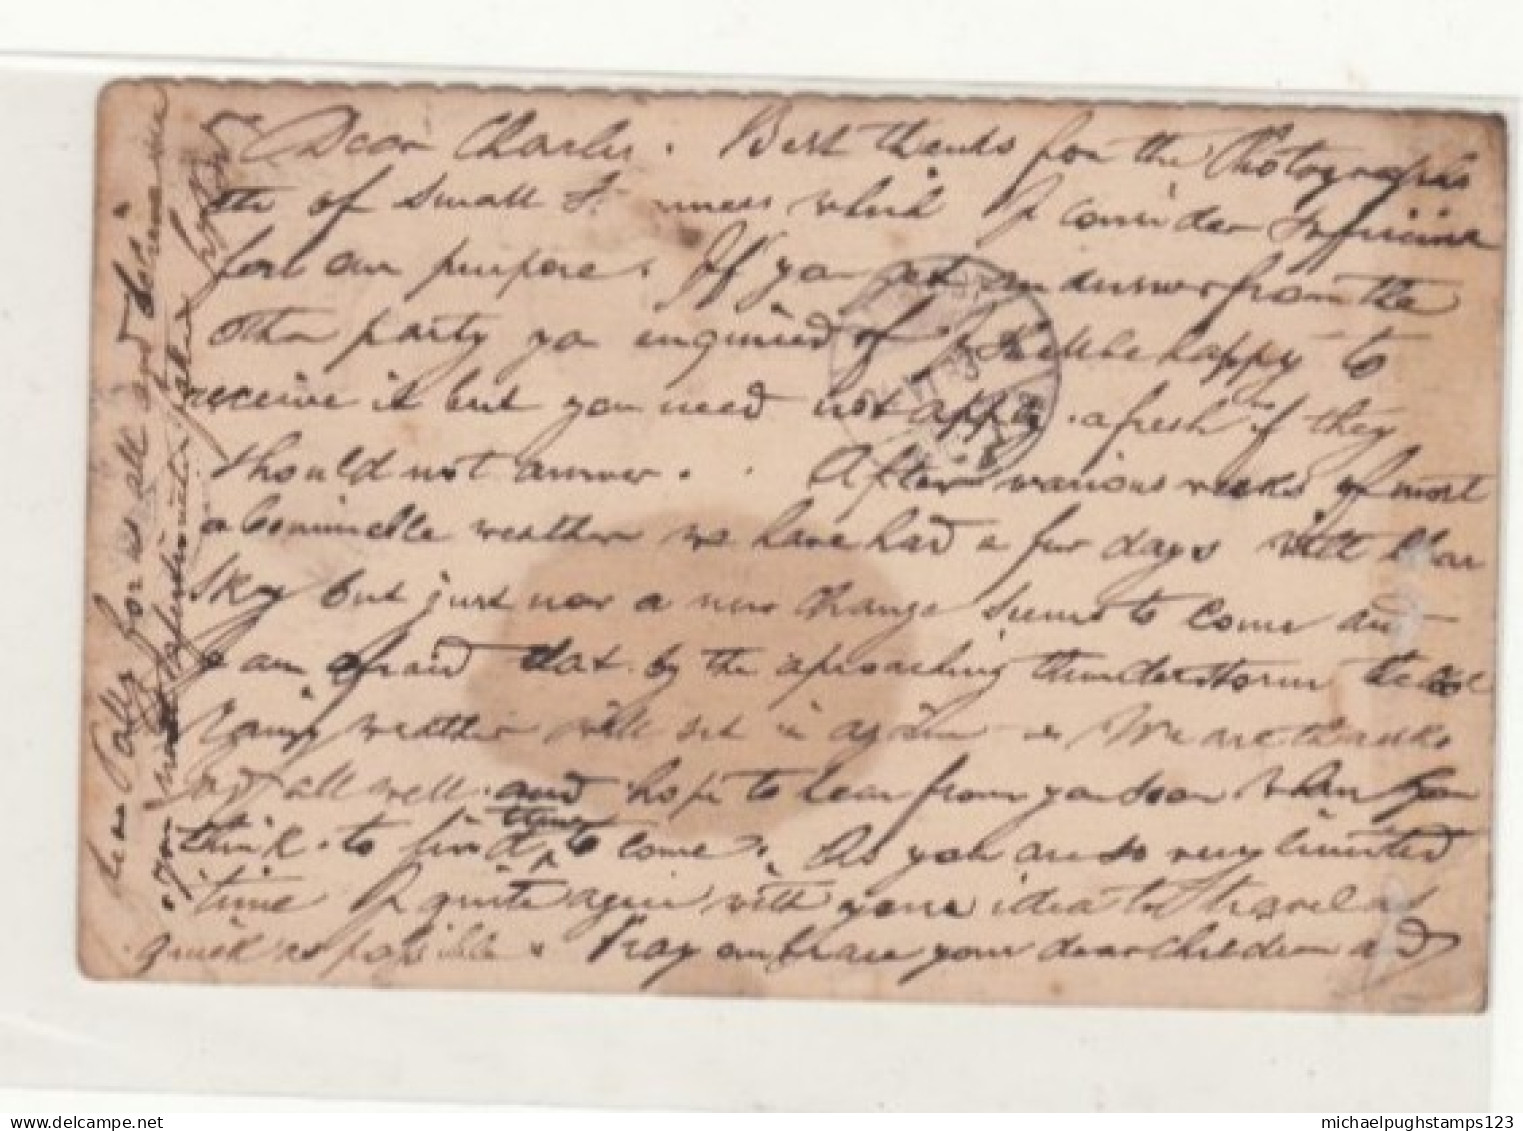 Dear Charles. Best thanks for the Photographs
etc of small which I consider sufficient
for our purpose. If you get an answer from the
other party you enquired of I shall be happy to
receive it but you need not apply afresh if they
should not answer. After various weeks of most
abominable weather we have had a few days with clear
sky but just now a new change seems to come and
I am afraid that by the aproaching thunderstorm the
rainy weather will set in again. We are thanks
God all well and hope to hear from you soon when you
think to find time to come. As you are so very limited
time I quite agree with your idea to travel as
quick as possible. Pray embrace your dear children and
for us all and
michaelpughstamps123